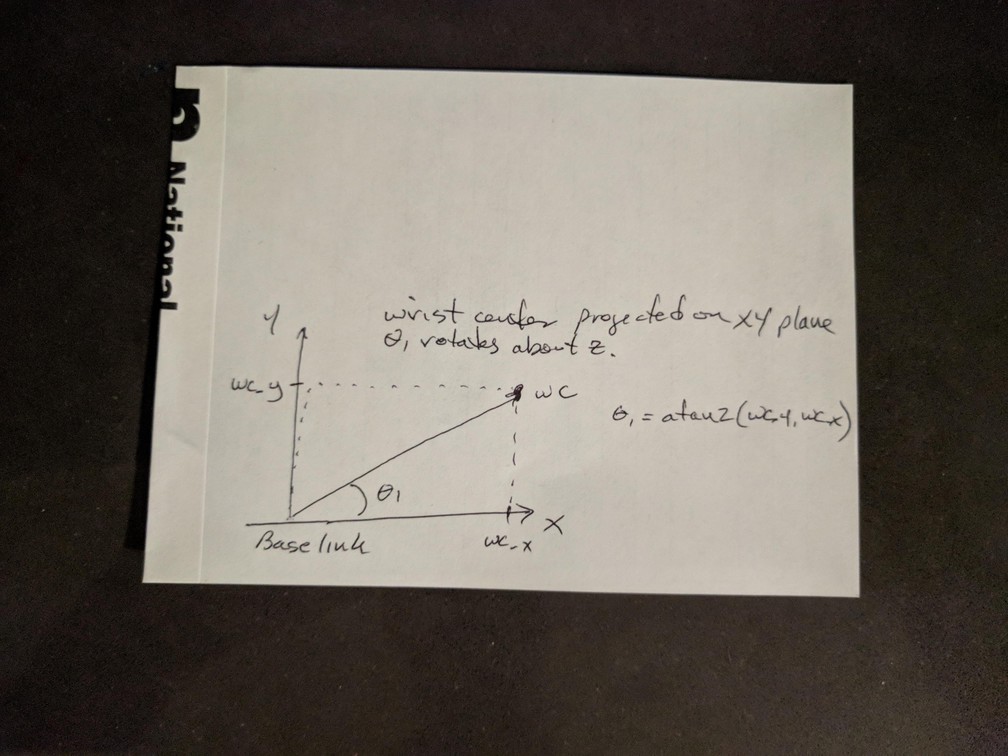 National
wrist center projected on XY plane
θ₁ rotates about z.
Y
wc-y
WC
θ₁ = atan2(wc-y, wc-x)
θ₁
X
Base link
wc-x